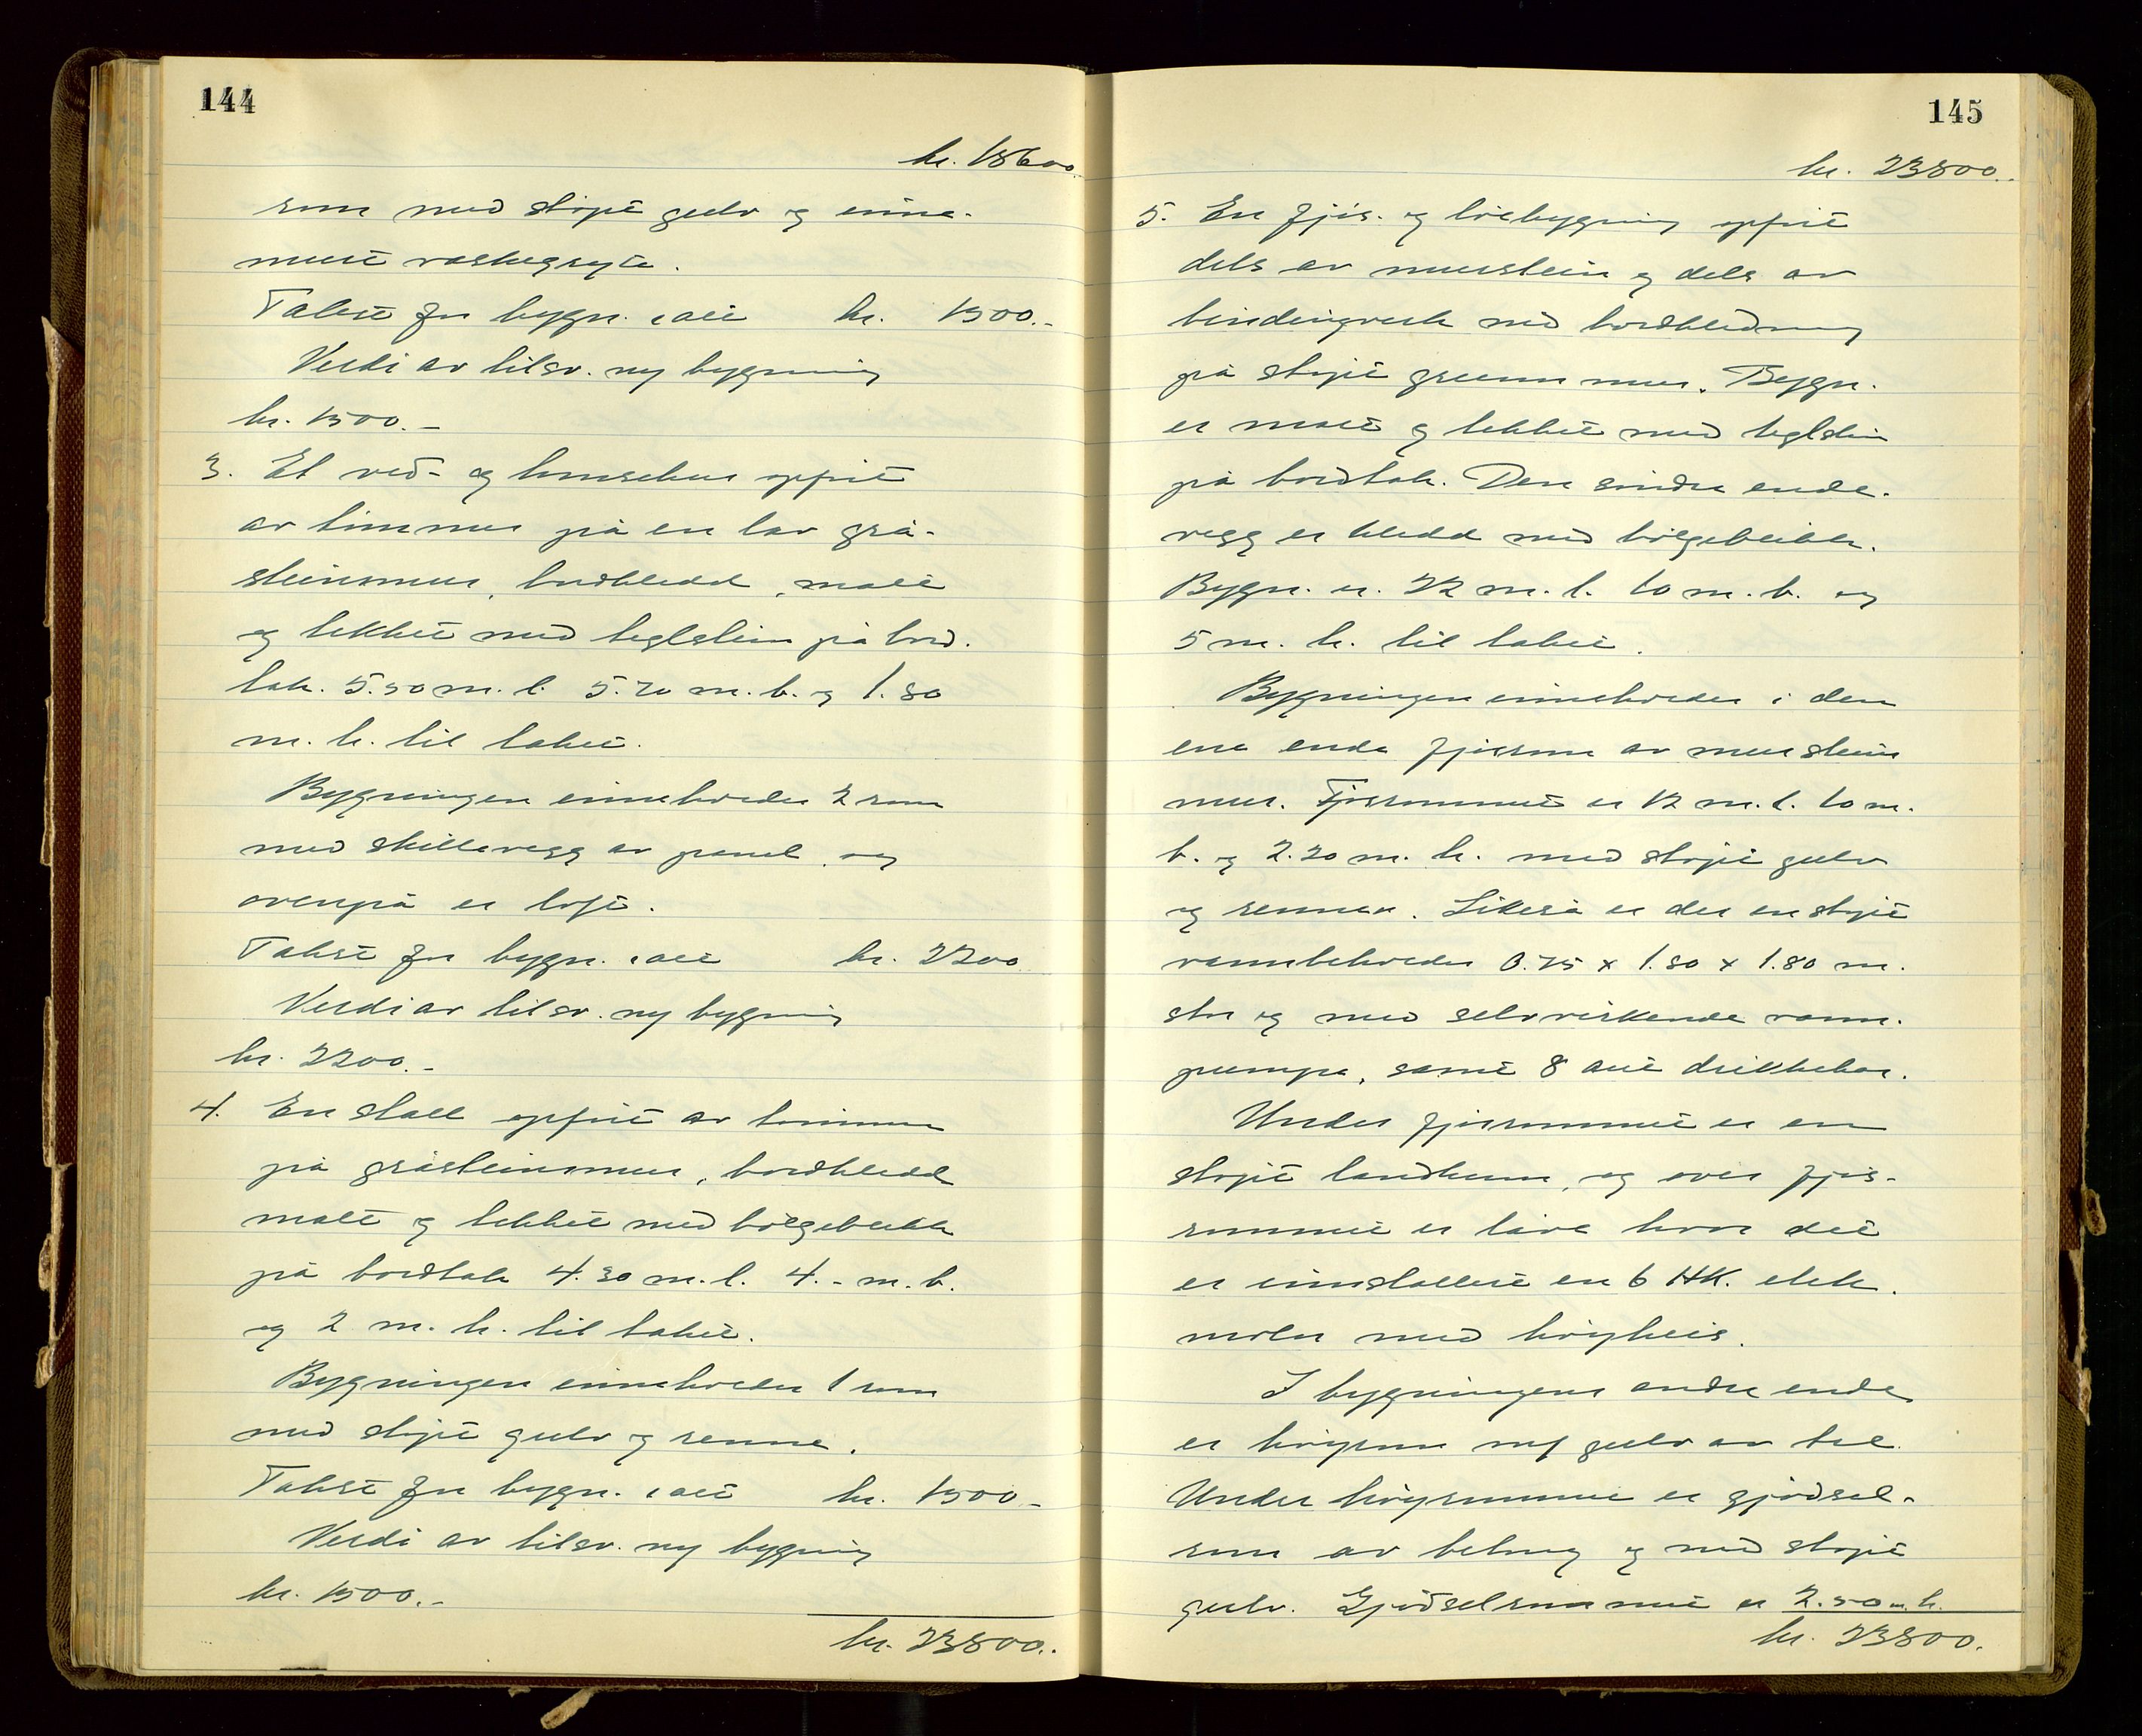 144
kr. 18600.
rom med støpt gulv og inne-
murt vaskegryte.
Takst for bygn. i alt kr. 1500.-
Verdi av tilsv. ny bygning
kr. 1500.-
3. Et ved- og hønsehus oppført
av tømmer på en lav grå-
steinsmur, bordkledd, malt
og tekket med teglstein på bord-
tak. 5.50 m. l. 5.20 m. b. og 1.80
m. h. til taket.
Bygningen inneholder 2 rom
med skillevegg av panel, og
ovenpå er loft.
Takst for bygn. i alt kr. 2200
Verdi av tilsv. ny bygning
kr. 2200.-
4. En stall oppført av tømmer
på gråsteinsmur, bordkledd
malt og tekket med bølgeblikk
på bordtak 4.30 m. l. 4.- m. b.
og 2 m. h. til taket.
Bygningen inneholder 1 rom
med støpt gulv og renne.
Takst for bygn. i alt kr. 1500.-
Verdi av tilsv. ny bygning
kr. 1500.-
kr. 23800.-
145
kr. 23800.-
5. En fjøs- og løebygning oppført
dels av murstein og dels av
bindingverk med bordkledning
på støpt grunnmur. Bygn.
er malt og tekket med teglstein
på bordtak. Den søndre ende-
vegg er kledd med bølgeblikk.
Bygn. er. 22 m. l. 10 m. b. og
5 m. h. til taket.
Bygningen inneholder i den
ene ende fjøsrom av murstein
mur. Fjøsrommet er 12 m. l. 10 m.
b. og 2.20 m. h. med støpt gulv
og renner. Likeså er der en støpt
vannbeholder 0.75 x 1.80 x 1.80 m.
stor og med selvvirkende vann-
pumpe, samt 8 aut drikkekar.
Under fjøsrommet er en
støpt landkum, og over fjøs-
rommet er låve hvor det
er innstallert en 6 HK. elek.
motor med høyheis.
I bygningens andre ende
er høyrom m/ gulv av tre.
Under høyrommet er gjødsel-
rom av betong og med støpt
gulv. Gjødselrommet er 2.50 m. h.
kr. 23800.